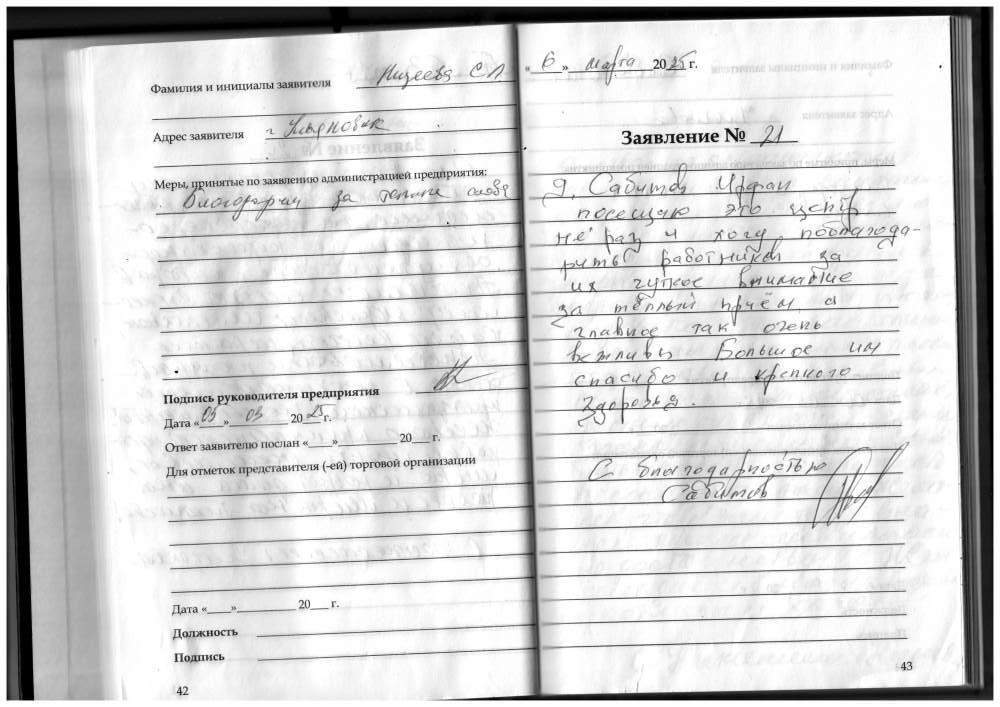 Фамилия и инициалы заявителя Мизеева С Л
Адрес заявителя г Ульяновск
Меры, принятые по заявлению администрацией предприятия:
Благодарим за теплые слова
Подпись руководителя предприятия
Дата «05» 03 2025 г.
Ответ заявителю послан «____»__________ 20___ г.
Для отметок представителя (-ей) торговой организации
Дата «____»__________ 20___ г.
Должность
Подпись
42
«6» марта 2025 г.
Заявление № 21
Я, Сабитов Ирфан
посещаю это центр
не раз и хочу поблагода-
рить работников за
их чуткое внимание
за тёплый приём а
главное так очень
вежливы Большое им
спасибо и крепкого
Здоровья.
С благодарностью
Сабитов
43